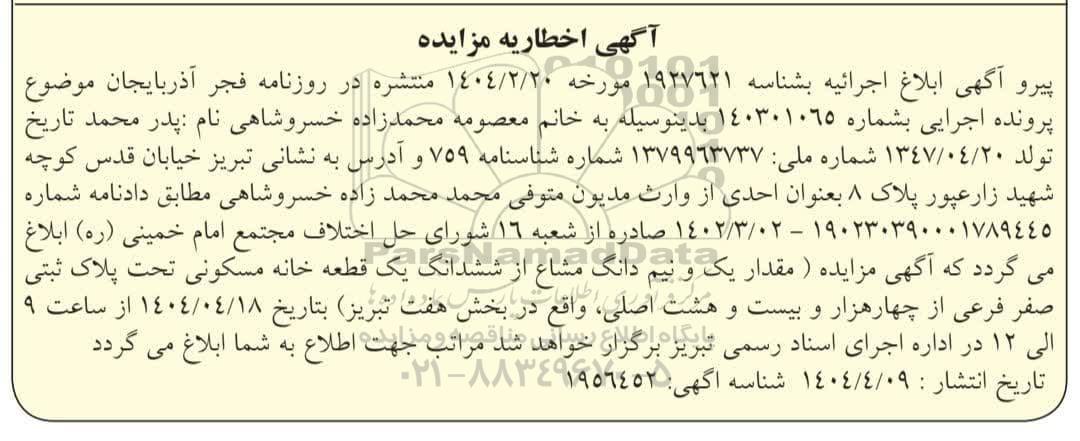 آگهی اخطاریه مزایده
پیرو آگهی ابلاغ اجرائیه بشناسه ۱۹۲۷٦۲۱ مورخه ۱٤۰٤/۲/۲۰ منتشره در روزنامه فجر آذربایجان موضوع
پرونده اجرایی بشماره ۱٤۰۳۰۱۰٦٥ بدینوسیله به خانم معصومه محمدزاده خسروشاهی نام :پدر محمد تاریخ
تولد ۱۳٤۷/۰٤/۲۰ شماره ملی: ۱۳۷۹۹٦۳۷۳۷ شماره شناسنامه ۷٥۹ و آدرس به نشانی تبریز خیابان قدس کوچه
شهید زارعپور پلاک ۸ بعنوان احدی از وارث مدیون متوفی محمد محمد زاده خسروشاهی مطابق دادنامه شماره
۱۹۰۲۳۰۳۹۰۰۰۱۷۸۹٤٤٥ – ۱٤۰۲/۳/۰۲ صادره از شعبه ۱٦ شورای حل اختلاف مجتمع امام خمینی (ره) ابلاغ
می گردد که آگهی مزایده ( مقدار یک و نیم دانگ مشاع از ششدانگ یک قطعه خانه مسکونی تحت پلاک ثبتی
صفر فرعی از چهارهزار و بیست و هشت اصلی، واقع در بخش هفت تبریز) بتاریخ ۱٤۰٤/۰٤/۱۸ از ساعت ۹
الی ۱۲ در اداره اجرای اسناد رسمی تبریز برگزار خواهد شد مراتب جهت اطلاع به شما ابلاغ می گردد
تاریخ انتشار : ۱٤۰٤/٤/۰۹ شناسه اگهی: ۱۹٥٦٤٥۲
ParsNamadData
پایگاه اطلاع رسانی مناقصه و مزایده
۰۲۱-۸۸۳٤۹٦۷۰-٥